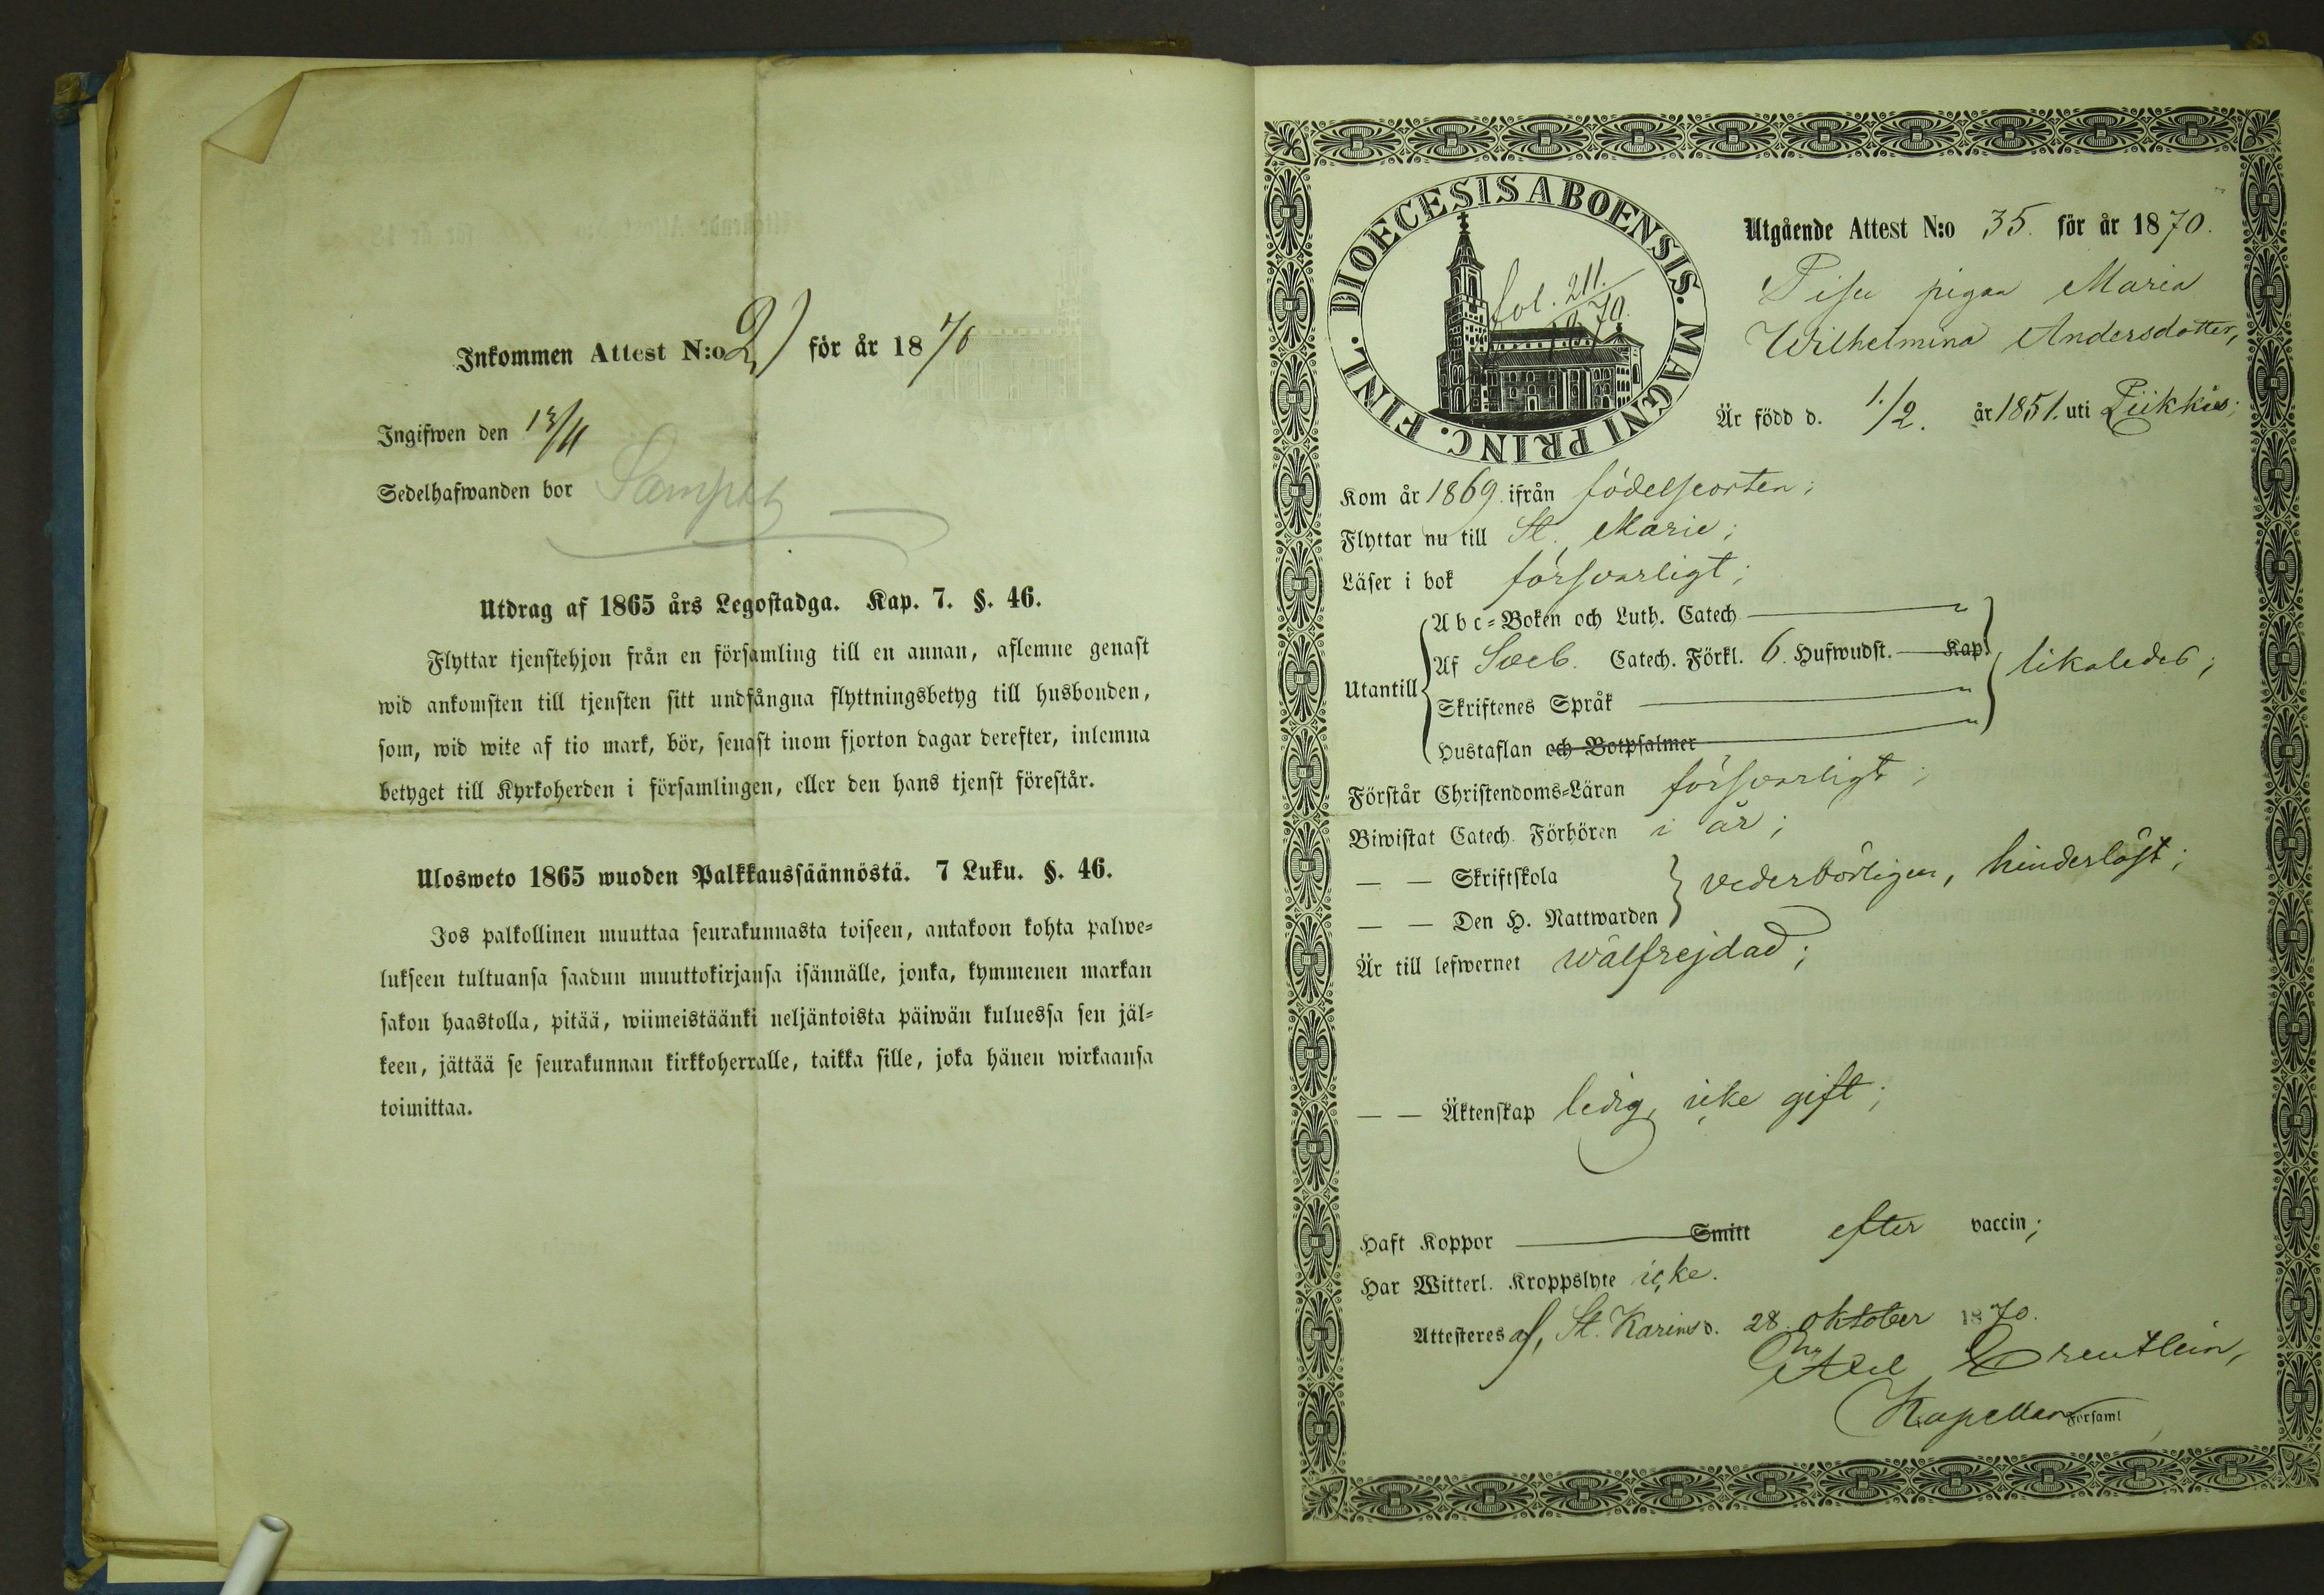 Inkommen Attest N:o 2) för år 1870
Ingifwen den 13/11
Sedelhafwanden bor
Utdrag af 1865 års Legostadga. Kap. 7. §. 46.
Flyttar tjenstehjon från en församling till en annan, aflemne genast
wid ankomsten till tjensten sitt undfångna flyttningsbetyg till husbonden,
som, wid wite af tio mark, bör, senast inom fjorton dagar derefter, inlemna
betyget till Kyrkoherden i församlingen, eller den hans tjenst förestår.
Ulosweto 1865 wuoden Palkkaussäännöstä. 7 Luku. §. 46.
Jos palkollinen muuttaa seurakunnasta toiseen, antakoon kohta palwe-
lukseen tultuansa saadun muuttokirjansa isännälle, jonka, kymmenen markan
sakon haastolla, pitää, wiimeistäänki neljäntoista päiwän kuluessa sen jäl-
keen, jättää se seurakunnan kirkkoherralle, taikka sille, joka hänen wirkaansa
toimittaa.
DIOECESIS ABOENSIS. MAGNI PRINC. FINL.
fol. 211.
1870.
Utgående Attest N:o 35. för år 1870.
pigan Maria
Wilhelmina Andersdotter,
Är född d. 1./2. år 1851. uti Piikkis;
Kom år 1869. ifrån födelseorten;
Flyttar nu till St. Marie;
Läser i bok försvarligt;
Abc-Boken och Luth. Catech
Utantill Af Sveb. Catech. Förkl. 6. Hufwudst. Kap. likaledes;
Skriftenes Språk
Hustaflan och Botpsalmer
Förstår Christendoms-Läran försvarligt;
Biwistat Catech. Förhören i år;
— — Skriftskola vederbörligen, hinderlöst;
— — Den H. Nattwarden
Är till lefwernet wälfrejdad;
— — Äktenskap ledig, icke gift;
Haft Koppor Smitt efter vaccin;
Har Witterl. Kroppslyte icke.
Attesteras af, St. Karins d. 28. oktober 1870.
Axel
Kapellan Församl